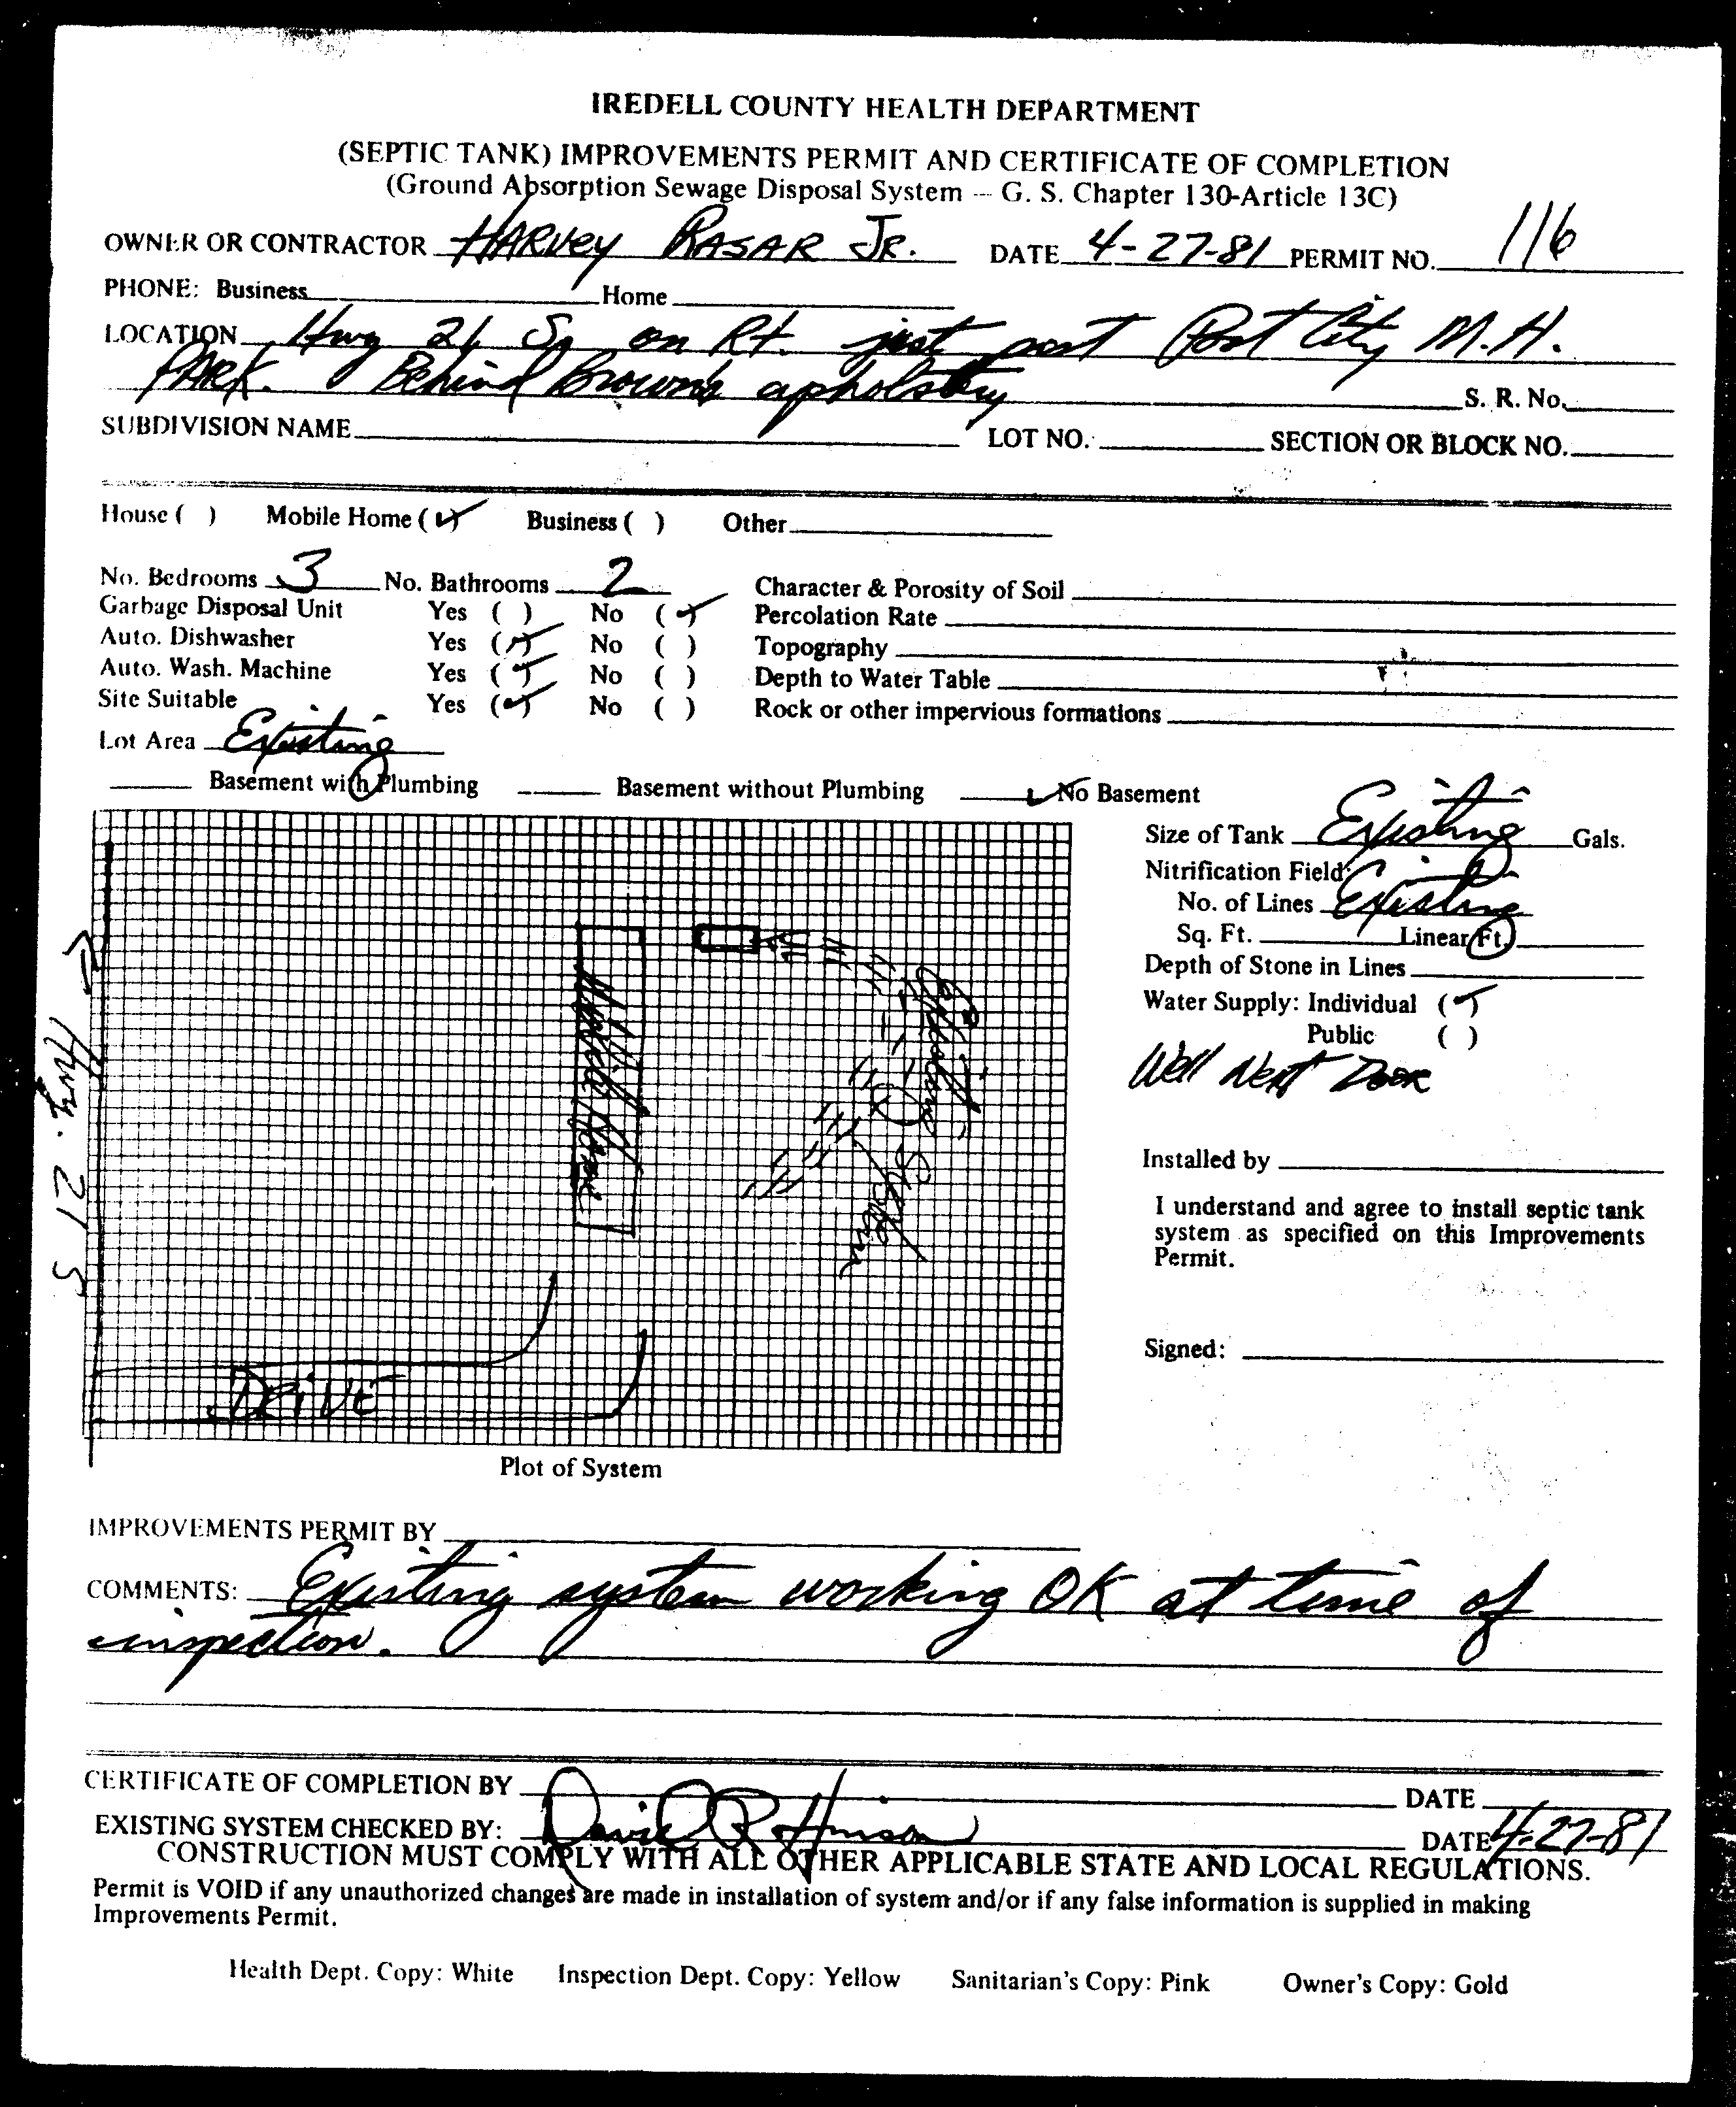 IREDELL COUNTY HEALTH DEPARTMENT
(SEPTIC TANK) IMPROVEMENTS PERMIT AND CERTIFICATE OF COMPLETION
(Ground Absorption Sewage Disposal System -- G. S. Chapter 130-Article 13C)
OWNER OR CONTRACTOR HARVEY RASAR JR. DATE 4-27-81 PERMIT NO. 116
PHONE: Business Home
LOCATION Hwy 21 So on Rt. just past Port City M.H.
PARK. Behind Brown's upholstery S. R. No.
SUBDIVISION NAME LOT NO. SECTION OR BLOCK NO.
House ( ) Mobile Home (✓) Business ( ) Other
No. Bedrooms 3 No. Bathrooms 2 Character & Porosity of Soil
Garbage Disposal Unit Yes ( ) No (✓) Percolation Rate
Auto. Dishwasher Yes (✓) No ( ) Topography
Auto. Wash. Machine Yes (✓) No ( ) Depth to Water Table
Site Suitable Yes (✓) No ( ) Rock or other impervious formations
Lot Area Existing
Basement with Plumbing Basement without Plumbing ✓ No Basement
Size of Tank Existing Gals.
Nitrification Field:
No. of Lines Existing
Sq. Ft. Linear Ft.
Depth of Stone in Lines
Water Supply: Individual (✓)
Public ( )
Well Next Door
Installed by
I understand and agree to install septic tank
system as specified on this Improvements
Permit.
Signed:
Hwy. 21 S
Mobile Home
Existing System
DRIVE
Plot of System
IMPROVEMENTS PERMIT BY
COMMENTS: Existing system working OK at time of
inspection.
CERTIFICATE OF COMPLETION BY DATE
EXISTING SYSTEM CHECKED BY: David R Hinson DATE 4-27-81
CONSTRUCTION MUST COMPLY WITH ALL OTHER APPLICABLE STATE AND LOCAL REGULATIONS.
Permit is VOID if any unauthorized changes are made in installation of system and/or if any false information is supplied in making
Improvements Permit.
Health Dept. Copy: White Inspection Dept. Copy: Yellow Sanitarian's Copy: Pink Owner's Copy: Gold